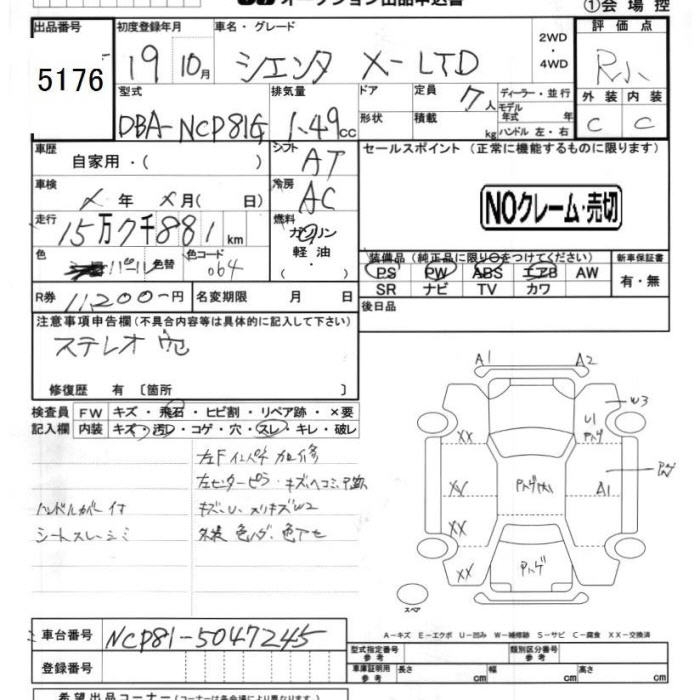 オークション出品申込書
①会場控
出品番号 初度登録年月 車名・グレード 評価点
5176 19 10月 シエンタ X-LTD 2WD・4WD R小
型式 排気量 ドア 定員 7人 ディーラー・並行 外装 内装
DBA-NCP81G 1.49cc 形状 積載 kg モデル年式 年 ハンドル 左・右 C C
車歴 自家用・( ) シフト AT セールスポイント(正常に機能するものに限ります)
車検 メ 年 メ月( 日) 冷房 AC
NOクレーム・売切
走行 15万7千881km 燃料 ガソリン・軽油・( )
色 パール 色替 色コード 064
装備品(純正品に限り○をつけてください) 新車保証書
PS PW ABS エアB AW 有・無
SR ナビ TV カワ
R券 11200円 名変期限 月 日 後日品
注意事項申告欄(不具合内容等は具体的に記入して下さい)
ステレオ
修復歴 有 〔箇所 〕
検査員記入欄 FW キズ・飛石・ヒビ割・リペア跡・×要
内装 キズ・汚レ・コゲ・穴・スレ・キレ・破レ
左Fインパネ加修
左センターピラ・キズヘコミ
ハンドルカバー付 キズ・U・ヌリキズW2
シートスレ・シミ 外装 色ハゲ、色アセ
A1 A2
W3
U1
XX
XX A1
XX
XX
スペア
A-キズ E-エクボ U-凹み W-補修跡 S-サビ C-腐食 XX-交換済
車台番号 NCP81-5047245
型式指定番号 参考 類別区分番号 参考
登録番号 車庫証明用 参考 長さ cm 幅 cm 高さ cm
希望出品コーナー(コーナーは各会場により異なります)